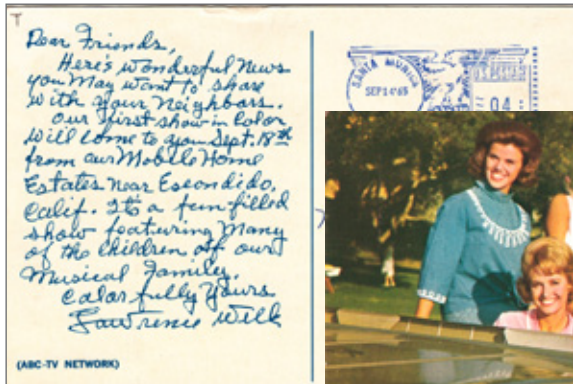 T
Dear Friends,
Here's wonderful News
you May want to share
with your Neighbors.
Our first show in Color
will come to you Sept. 18th
from our Mobile Home
Estates Near Escondido,
Calif. It's a fun-filled
show featuring Many
of the children of our
Musical Family.
Colorfully Yours
Lawrence Welk
(ABC-TV NETWORK)
SANTA MONICA
SEP 14 '65
U.S. POSTAGE
04